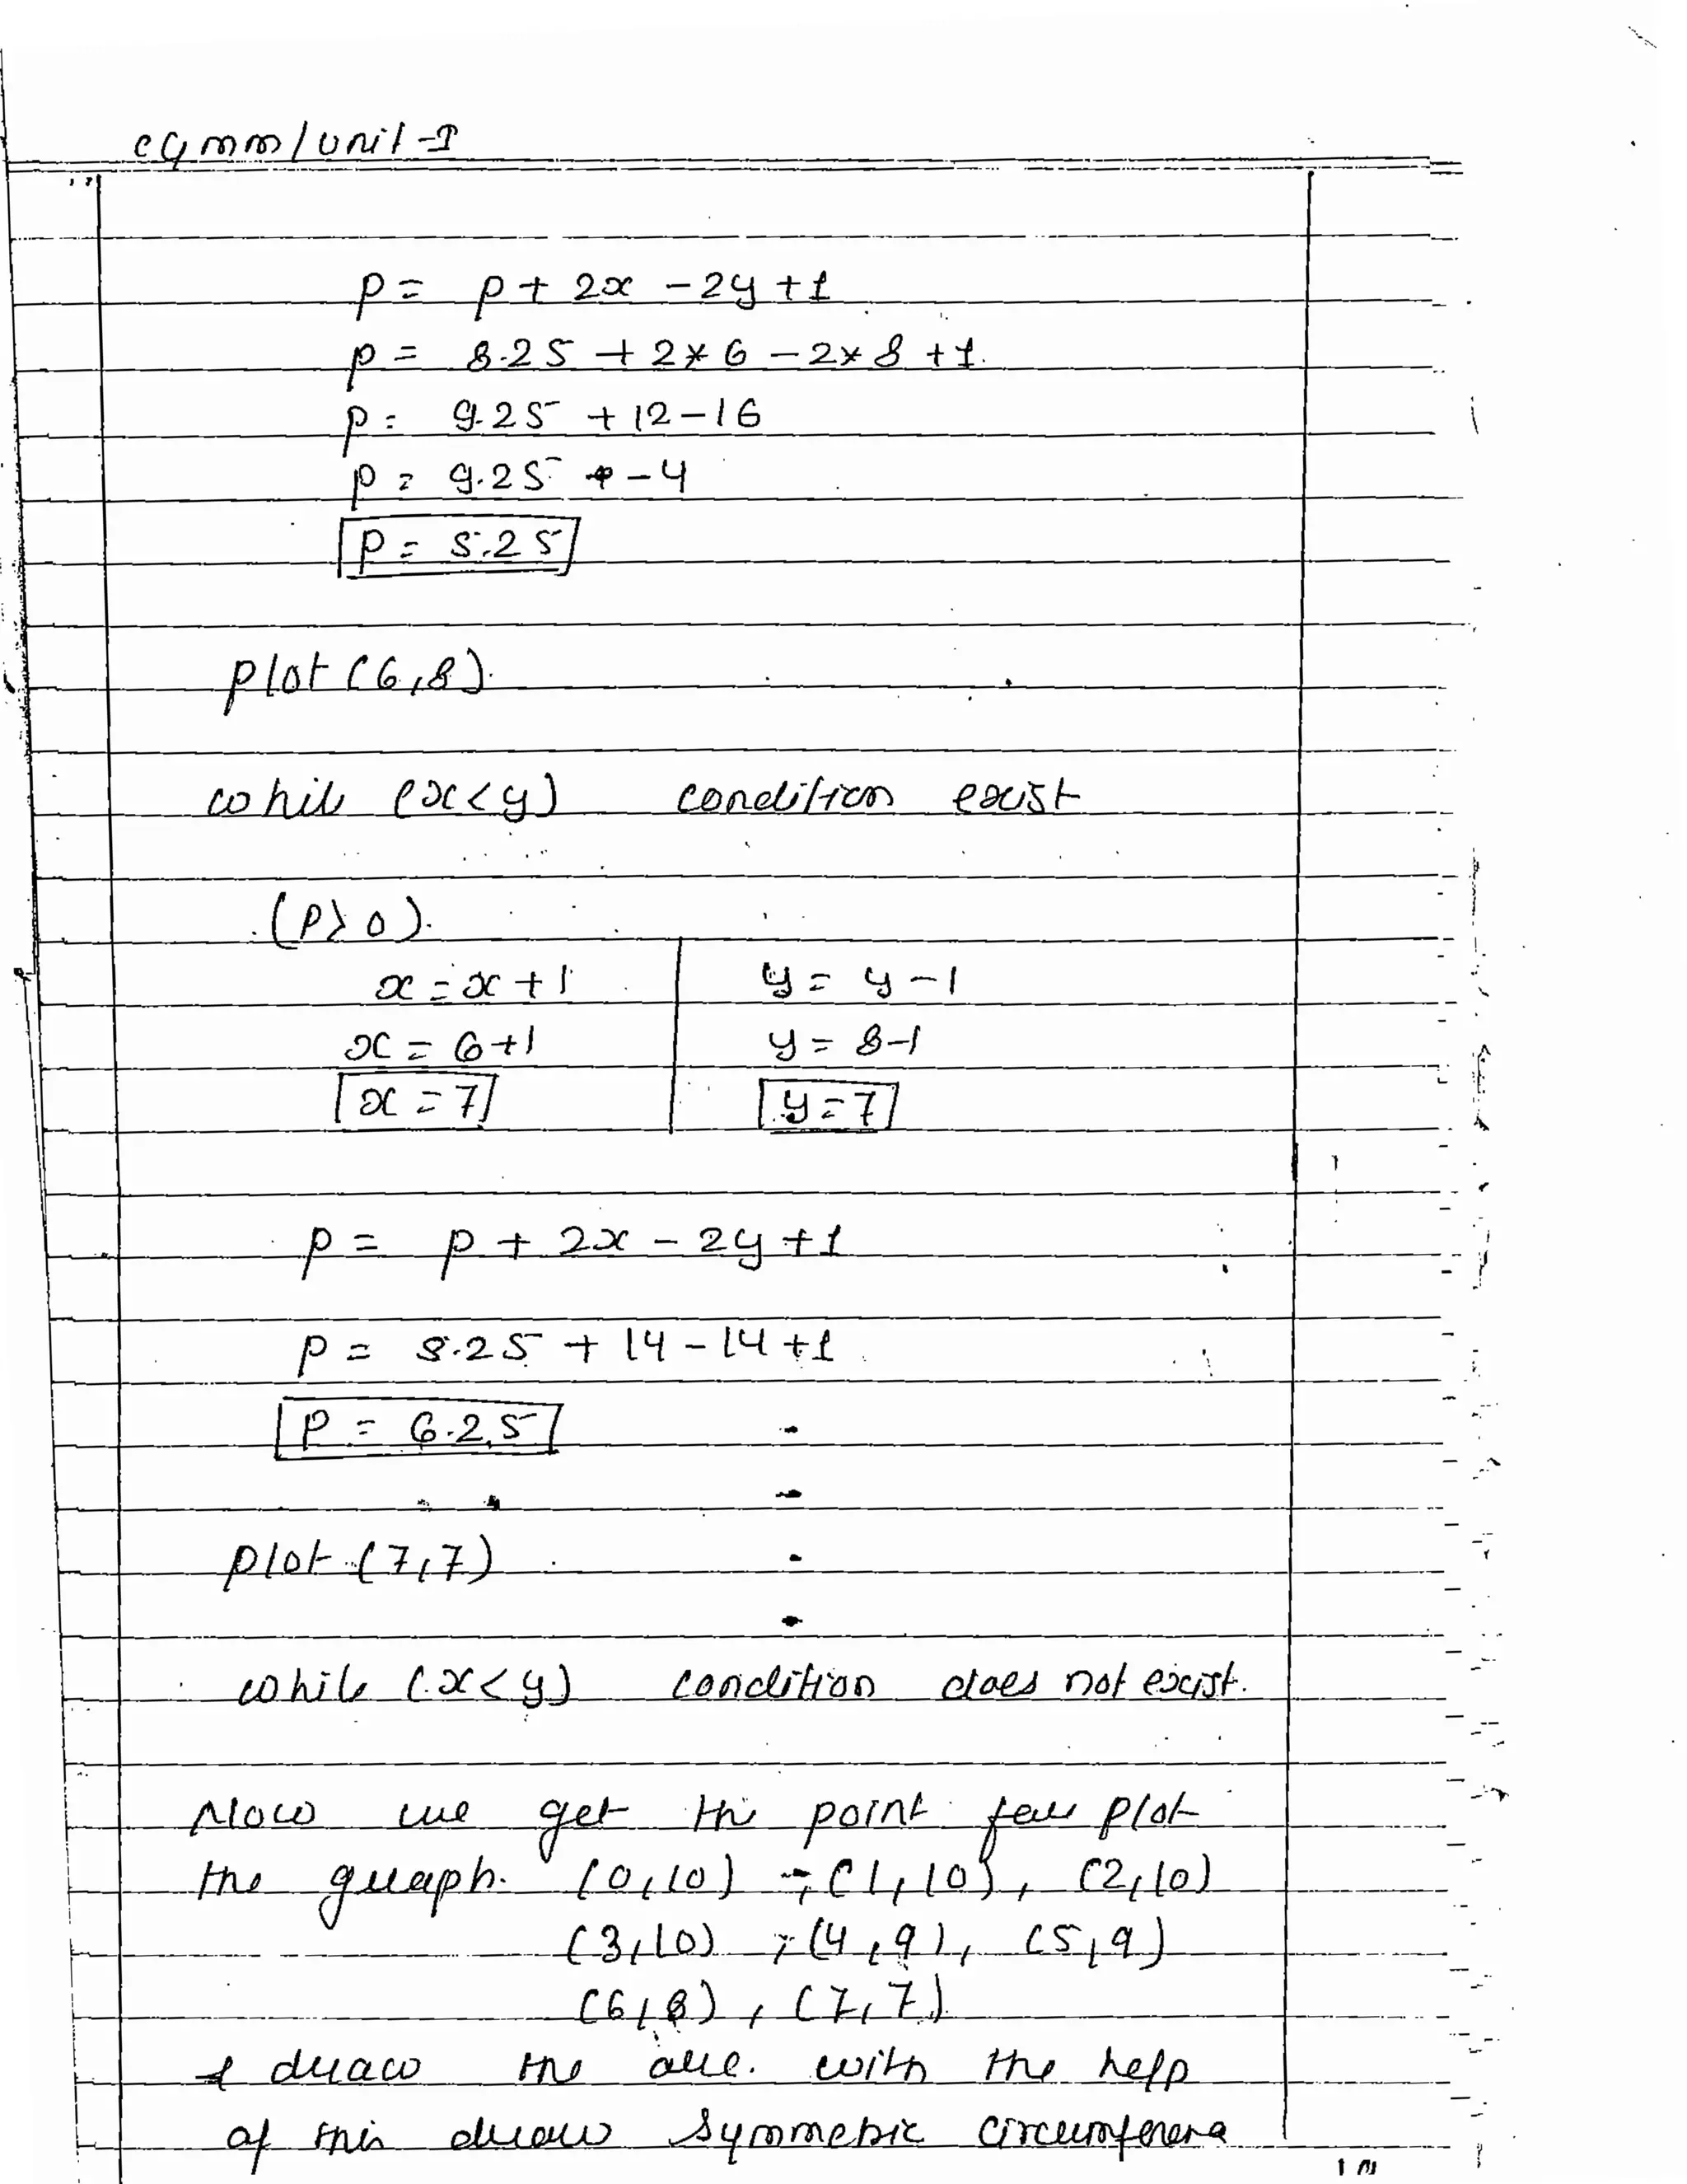 CGMM/Unit-I
p = p + 2x - 2y + 1
p = 8.25 + 2*6 - 2*8 + 1.
p = 9.25 + 12 - 16
p = 9.25 + -4
p = 5.25
plot (6,8).
while (x<y) condition exist
(P>0).
x = x + 1 y = y - 1
x = 6+1 y = 8-1
x = 7 y = 7
p = p + 2x - 2y + 1
p = 5.25 + 14 - 14 + 1
P = 6.25
plot (7,7)
while (x<y) condition does not exist.
Now we get the point for plot
the graph. (0,10), (1,10), (2,10)
(3,10), (4,9), (5,9)
(6,8), (7,7)
& draw the arc. with the help
of this draw symmetric